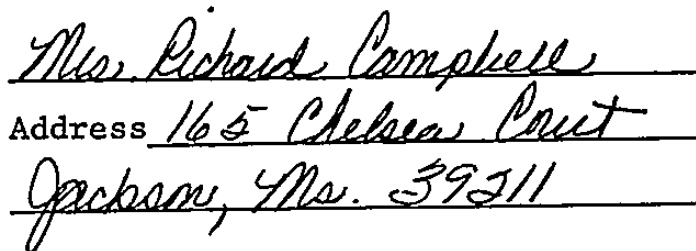 Mrs. Richard Campbell
Address 165 Chelsea Court
Jackson, Ms. 39211